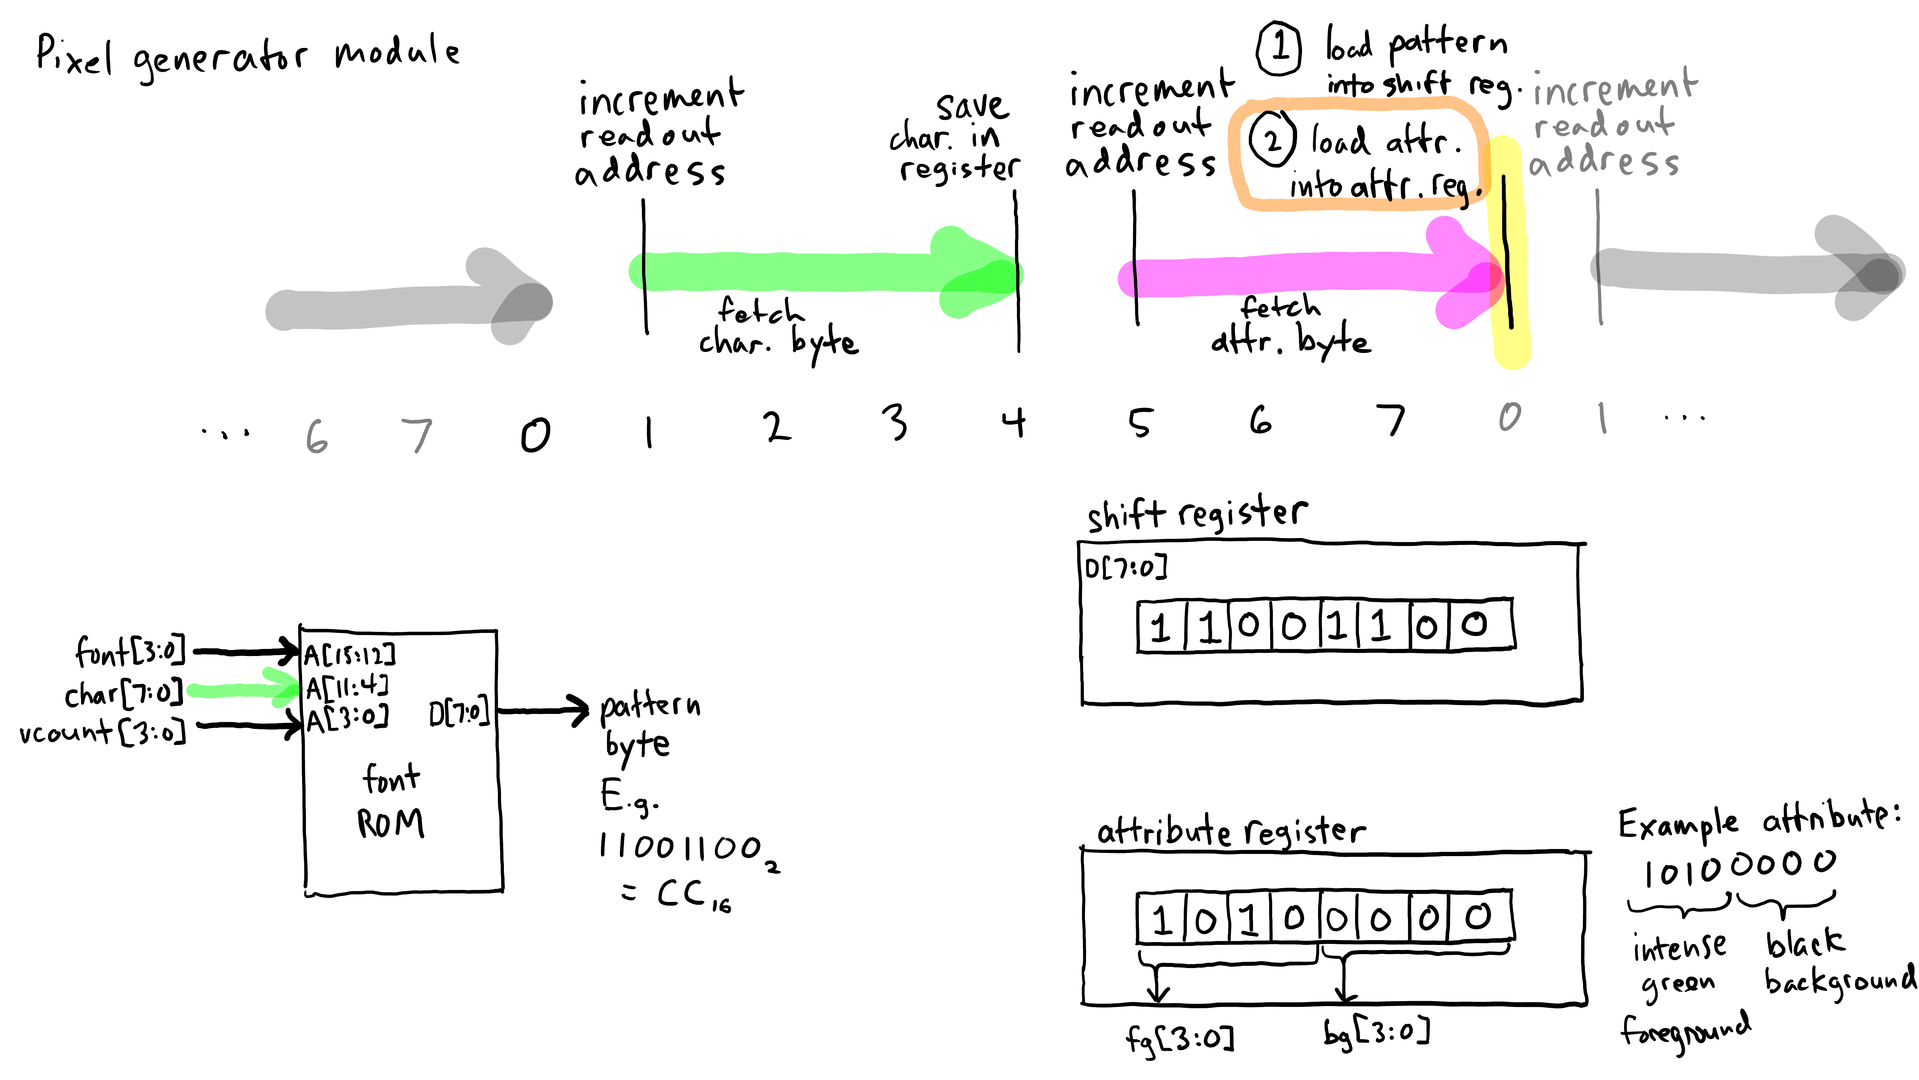 Pixel generator module
increment
readout
address
save
char. in
register
increment
readout
address
1 load pattern
into shift reg.
2 load attr.
into attr. reg.
increment
readout
address
fetch
char. byte
fetch
attr. byte
... 6 7 0 1 2 3 4 5 6 7 0 1 ...
font[3:0]
char[7:0]
vcount[3:0]
A[15:12]
A[11:4]
A[3:0]
D[7:0]
font
ROM
pattern
byte
E.g.
11001100₂
= CC₁₆
shift register
D[7:0]
1 1 0 0 1 1 0 0
attribute register
1 0 1 0 0 0 0 0
fg[3:0]
bg[3:0]
Example attribute:
10100000
intense
green
foreground
black
background